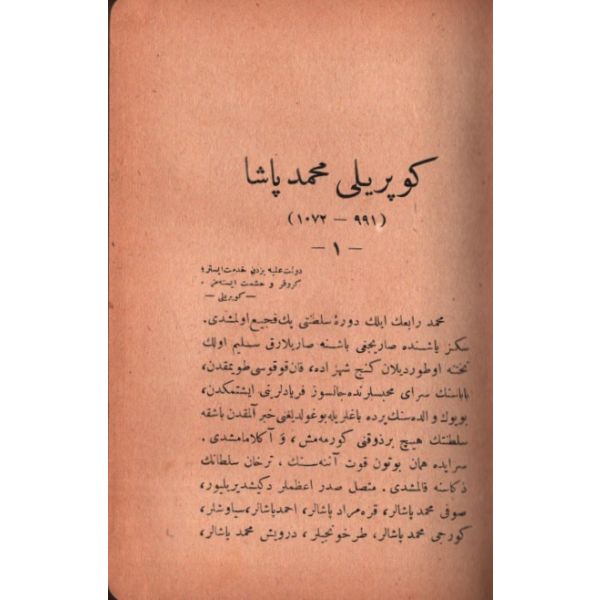 كوپريلى محمد پاشا
(٩٩١ – ١٠٧٢)
– ١ –
دولت عليه بزدن خدمت ايستر؛
كروفر و حشمت ايسته‌مز .
– كوپريلى –
محمد رابعك ايلك دورۀ سلطنتى پك فجيع اولمشدى.
سكز ياشنده صاريجغى باشنه صاريلارق سليم اولك
تخته اوطورديلان كنج شهزاده، قان قوقوسى طويمقدن،
باباسنك سراى محبسلرنده جانسوز فريادلرينى ايشتمكدن،
بويوك والده‌سنك پرده باغلريله بوغولديغنى خبر آلمقدن باشقه
سلطنتك هيچ بر ذوقنى كورمه‌مش، و آكلامامشدى .
سرايده همان بوتون قوت آننه‌سنك، ترخان سلطانك
ذكاسنه قالمشدى . متصل صدر اعظملر دكيشديريليور،
صوفى محمد پاشالر، قره مراد پاشالر، احمد پاشالر، سياوشلر،
كورجى محمد پاشالر، طرخونجيلر، درويش محمد پاشالر،